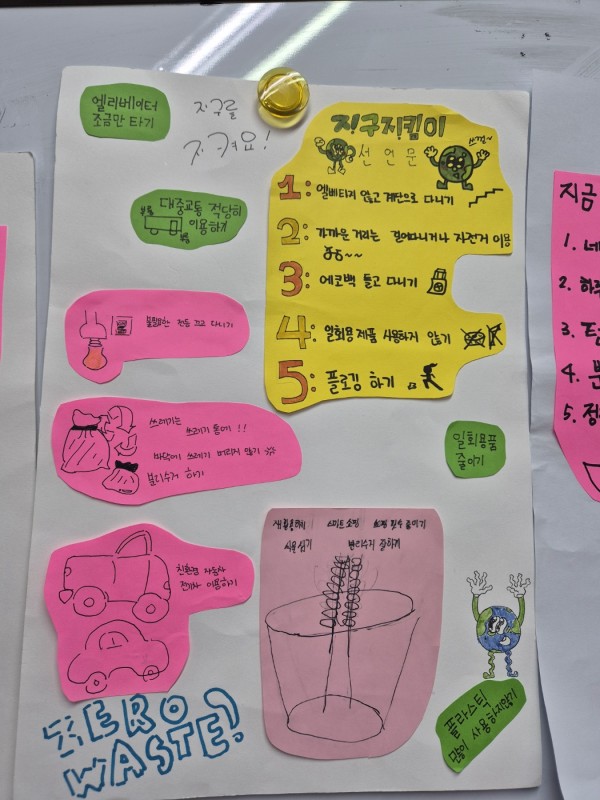 엘리베이터
조금만 타기
지구를
지켜요!
지구지킴이
선언문
1: 엘베타지 않고 계단으로 다니기
2: 가까운 거리는 걸어다니거나 자전거 이용
3: 에코백 들고 다니기
4: 일회용 제품 사용하지 않기
5: 플로깅 하기
대중교통 적당히
이용하기
불필요한 전등 끄고 다니기
쓰레기는
쓰레기 통에!!
바닥에 쓰레기 버리지 않기
분리수거 하기
일회용품
줄이기
친환경 자동차
전기차 이용하기
분리수거 잘하기
ZERO
WASTE?
플라스틱
많이 사용하지않기
지금
1. 네
2. 하루
3. 텀
4. 분
5. 장